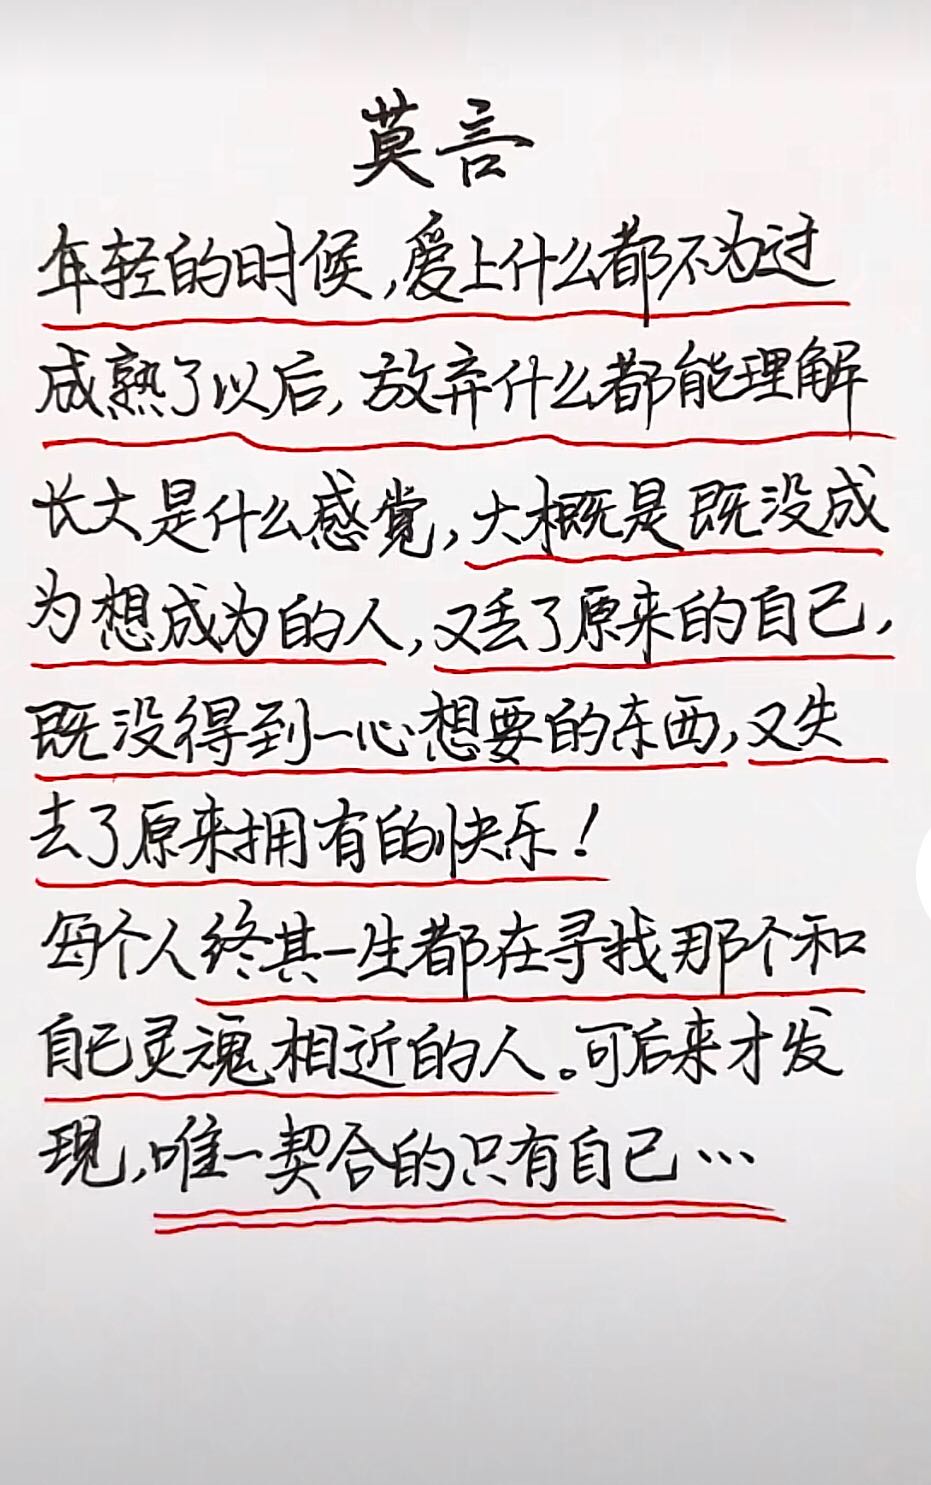 莫言
年轻的时候,爱上什么都不为过
成熟了以后,放弃什么都能理解
长大是什么感觉,大概是既没成
为想成为的人,又丢了原来的自己,
既没得到一心想要的东西,又失
去了原来拥有的快乐!
每个人终其一生都在寻找那个和
自己灵魂相近的人。可后来才发
现,唯一契合的只有自己…